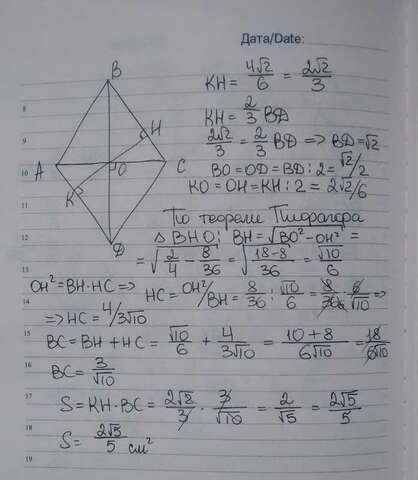 Дата/Date:
B
H
A
O
C
K
D
KH = 4√2/6 = 2√2/3
KH = 2/3 BD
2√2/3 = 2/3 BD => BD = √2
BO = OD = BD : 2 = √2/2
KO = OH = KH : 2 = 2√2/6
По теореме Пифагора
△ BHO: BH = √(BO² − OH²) =
= √(2/4 − 8/36) = √((18−8)/36) = √10/6
OH² = BH·HC => HC = OH²/BH = 8/36 : √10/6 = 8/36 · 6/√10 =>
=> HC = 4/3√10
BC = BH + HC = √10/6 + 4/3√10 = (10+8)/6√10 = 18/6√10
BC = 3/√10
S = KH · BC = 2√2/3 · 3/√10 = 2/√5 = 2√5/5
S = 2√5/5 см²
8
9
10
11
12
13
14
15
16
17
18
19